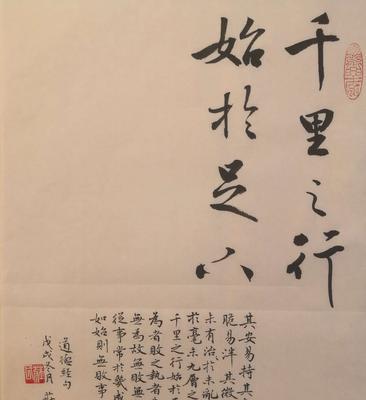 千里之行
始於足下
其安易持其
脆易泮其微
未有治於未亂
於毫末九層之
千里之行始於
為者敗之執者
無為故無敗無
從事常於幾成
如始則無敗事
道德經句
戊戌冬月